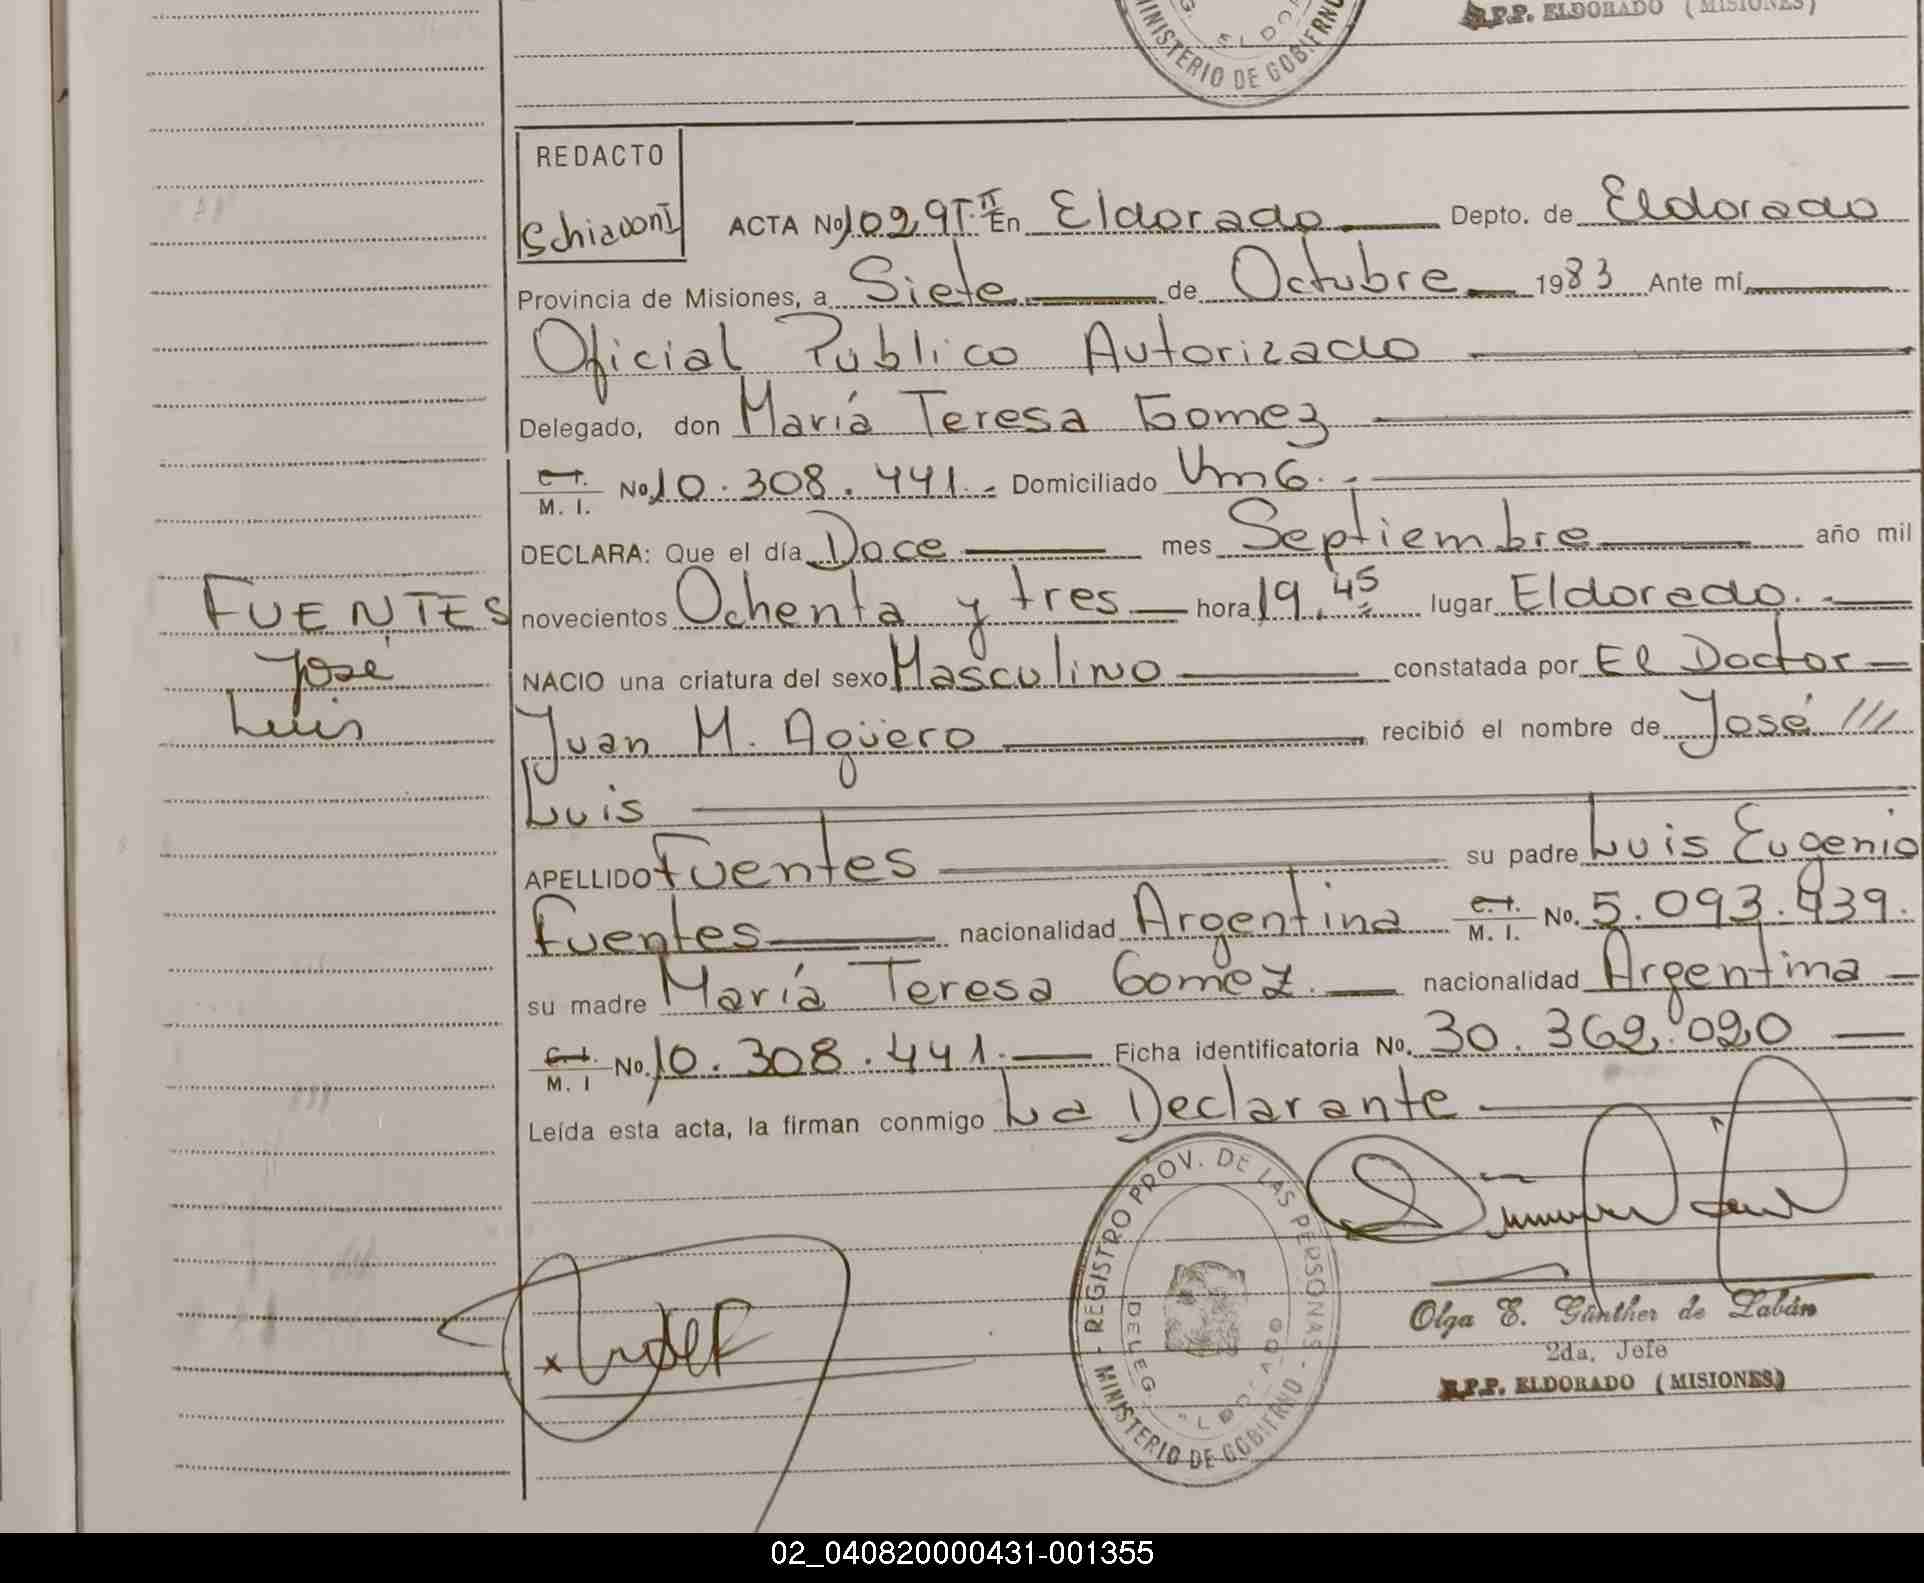 MINISTERIO DE GOBIERNO
R.P.P. ELDORADO (MISIONES)
REDACTO
Schiavoni
ACTA No 1029 T. II En Eldorado Depto. de Eldorado
Provincia de Misiones, a Siete de Octubre 1983 Ante mí
Oficial Publico Autorizado
Delegado, don María Teresa Gomez
C.I. M. I. No 10.308.441.- Domiciliado Km 6.-
DECLARA: Que el día Doce mes Septiembre año mil
novecientos Ochenta y tres hora 19,45 lugar Eldorado.
FUENTES
José
Luis
NACIO una criatura del sexo Masculino constatada por El Doctor
Juan M. Agüero recibió el nombre de José ///
Luis
APELLIDO Fuentes su padre Luis Eugenio
Fuentes nacionalidad Argentina C.I. M. I. No. 5.093.939.
su madre María Teresa Gomez. nacionalidad Argentina
C.I. M. I No. 10.308.441. Ficha identificatoria No. 30.362.020
Leída esta acta, la firman conmigo La Declarante
REGISTRO PROV. DE LAS PERSONAS - MINISTERIO DE GOBIERNO -
DELEG. ELDORADO
Olga E. Günther de Labán
2da. Jefe
R.P.P. ELDORADO (MISIONES)
02_040820000431-001355